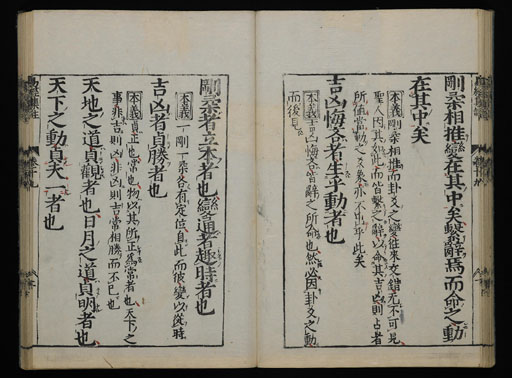 剛柔相推變在其中矣繫辭焉而命之動
在其中矣
本義剛柔相推而卦爻之變往來交錯无不可見
聖人因其如此而皆繫之辭以命其吉凶則占者
所值當動之爻象亦不出乎此矣
吉凶悔吝者生乎動者也
本義吉凶悔吝皆辭之所命也然必因卦爻之動
而後見
剛柔者立本者也變通者趣時者也
本義一剛一柔各有定位自此而彼變以從時
吉凶者貞勝者也
本義貞正也常也物以其所正爲常者也天下之
事非吉則凶非凶則吉常相勝而不已也
天地之道貞觀者也日月之道貞明者也
天下之動貞夫一者也